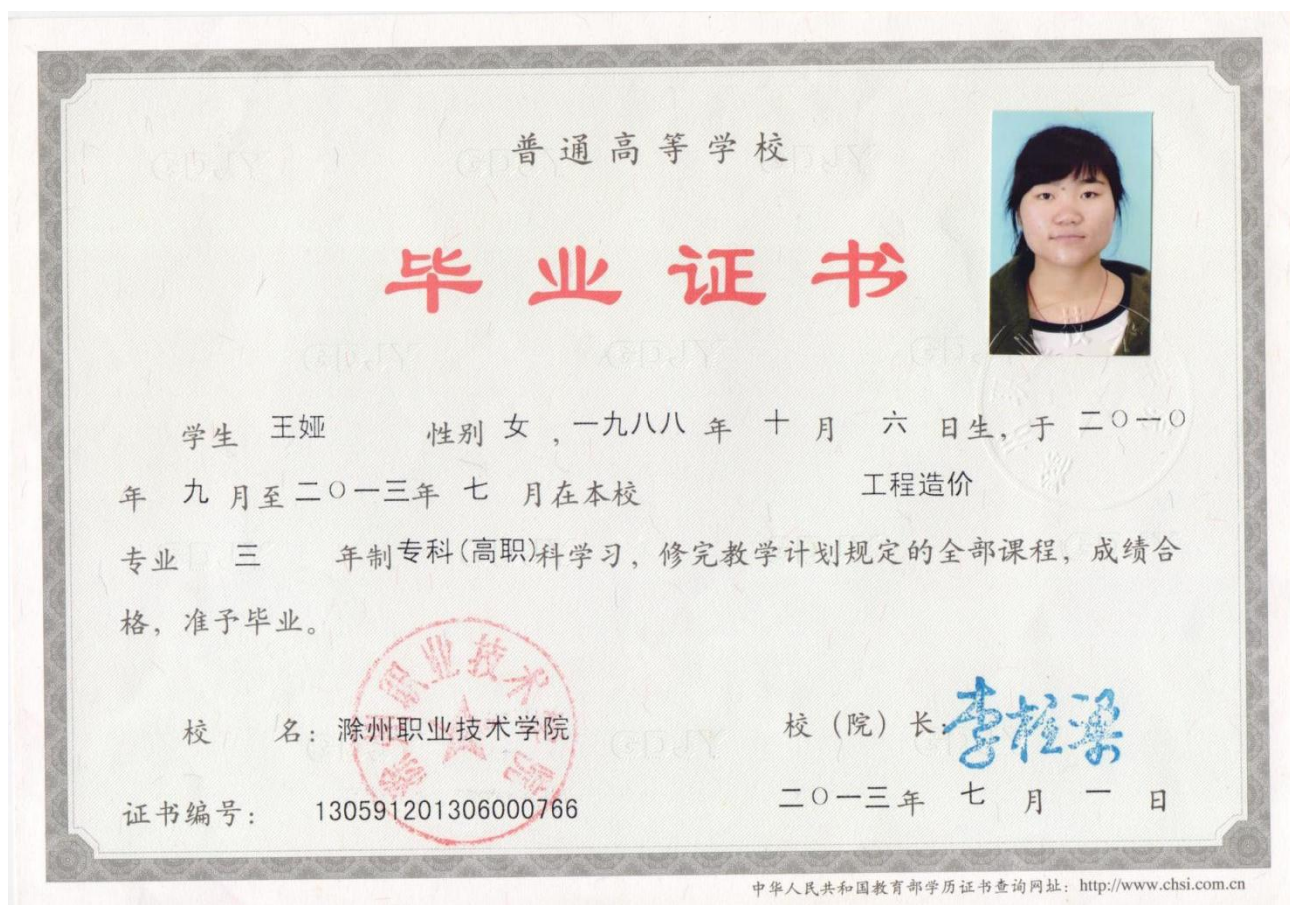 普通高等学校
毕业证书
学生 王娅 性别 女 ，一九八八 年 十 月 六 日生，于 二〇一〇
年 九 月至 二〇一三年 七 月在本校 工程造价
专业 三 年制专科(高职)科学习，修完教学计划规定的全部课程，成绩合
格，准予毕业。
滁州职业技术学院
校 名：滁州职业技术学院 校（院）长：李柱梁
证书编号： 130591201306000766 二〇一三年 七 月 一 日
中华人民共和国教育部学历证书查询网址：http://www.chsi.com.cn